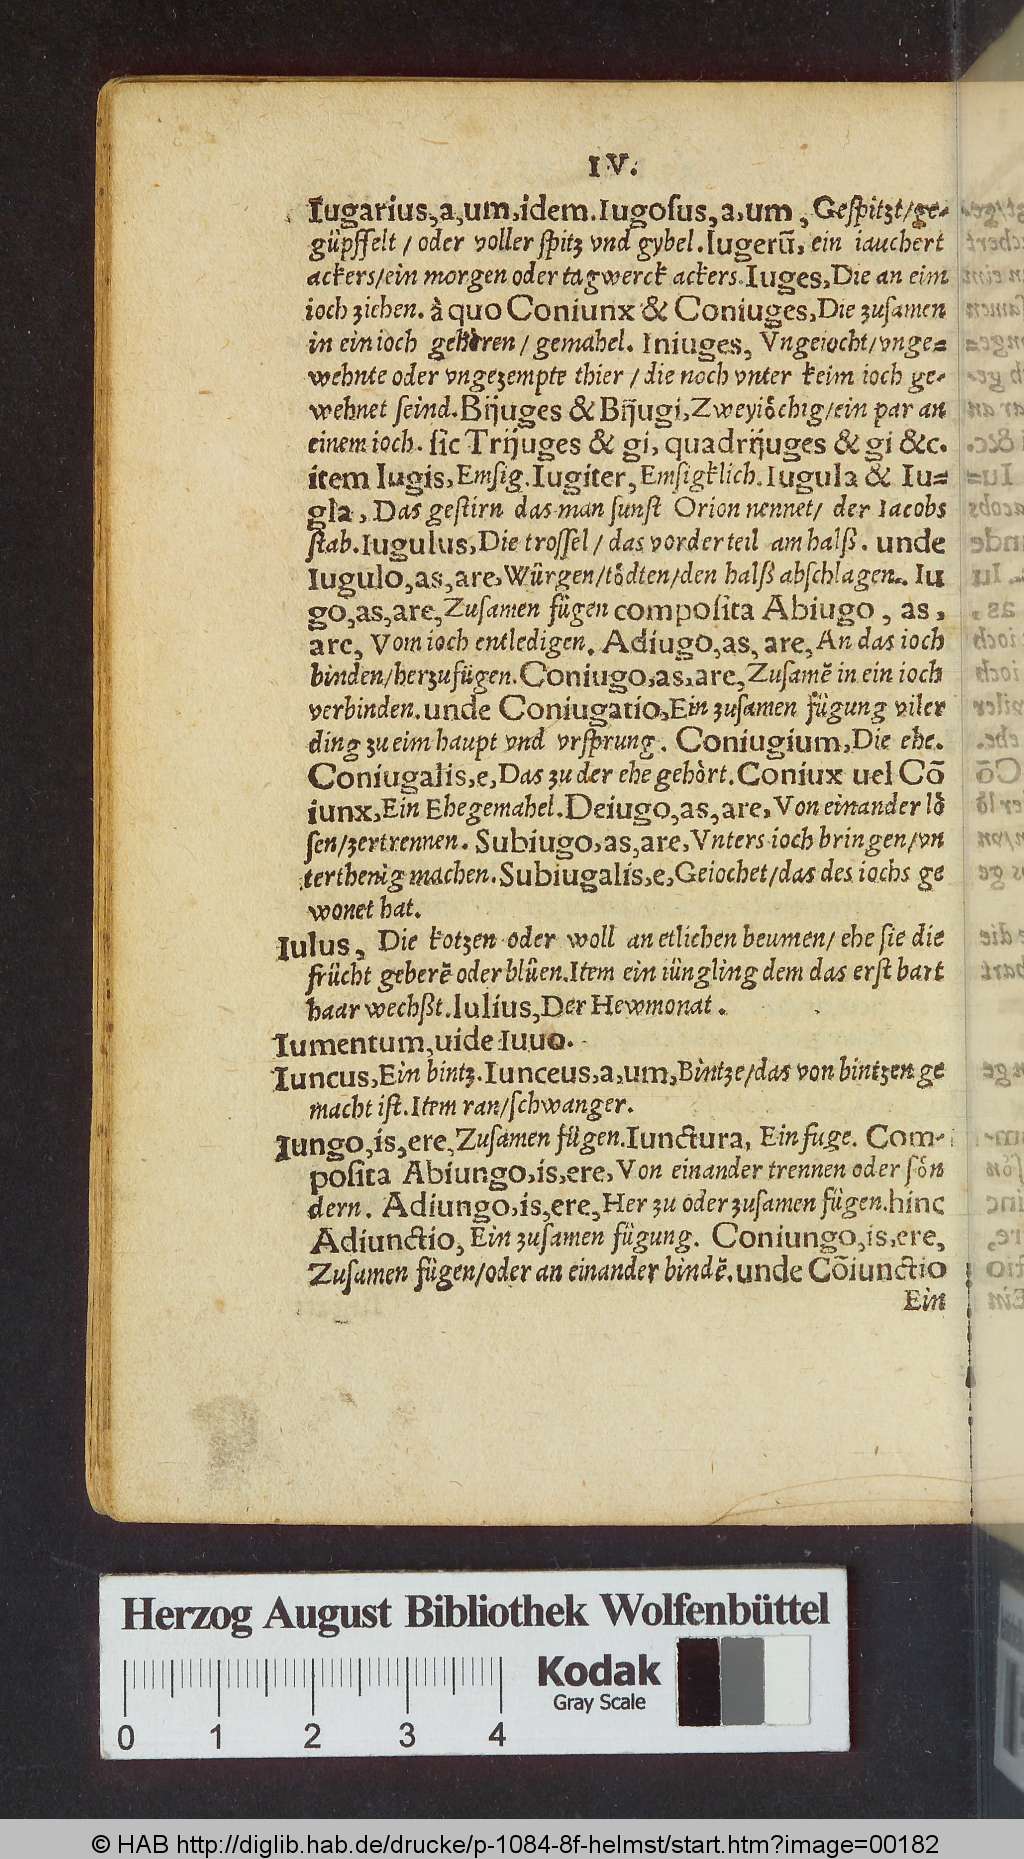 IV.
Iugarius,a,um,idem.Iugosus,a,um, Gespitzt/ge-
güpffelt/oder voller spitz vnd gybel.Iugerũ, ein iauchert
ackers/ein morgen oder tagwerck ackers.Iuges,Die an eim
ioch ziehen. à quo Coniunx & Coniuges,Die zusamen
in ein ioch gehören/gemahel. Iniuges, Vngeiocht/vnge=
wehnte oder vngezempte thier/die noch vnter keim ioch ge-
wehnet seind.Bijuges & Bijugi,Zweyiöchig/ein par an
einem ioch. sic Trijuges & gi, quadrijuges & gi &c.
item Iugis,Emsig.Iugiter,Emsigklich.Iugula & Iu=
gla,Das gestirn das man sunst Orion nennet/ der Iacobs
stab.Iugulus,Die trossel/das vorder teil am halß. unde
Iugulo,as,are,Würgen/tödten/den halß abschlagen. Iu
go,as,are,Zusamen fügen composita Abiugo, as,
are, Vom ioch entledigen. Adiugo,as, are,An das ioch
binden/herzufügen.Coniugo,as,are,Zusamẽ in ein ioch
verbinden.unde Coniugatio,Ein zusamen fügung viler
ding zu eim haupt vnd vrsprung. Coniugium,Die ehe.
Coniugalis,e,Das zu der ehe gehört.Coniux uel Cõ
iunx,Ein Ehegemahel.Deiugo,as,are,Von einander lö
sen/zertrennen. Subiugo,as,are,Vnters ioch bringen/vn
terthenig machen.Subiugalis,e,Geiochet/das des iochs ge
wonet hat.
Iulus, Die kotzen oder woll an etlichen beumen/ ehe sie die
frücht geberẽ oder blüen.Item ein iüngling dem das erst bart
haar wechßt.Iulius,Der Hewmonat.
Iumentum,uide Iuuo.
Iuncus,Ein bintz.Iunceus,a,um,Bintze/das von bintzen ge
macht ist.Item ran/schwanger.
Iungo,is,ere,Zusamen fügen.Iunctura, Ein fuge. Com-
posita Abiungo,is,ere,Von einander trennen oder sön
dern. Adiungo,is,ere,Her zu oder zusamen fügen.hinc
Adiunctio, Ein zusamen fügung. Coniungo,is,ere,
Zusamen fügen/oder an einander bindẽ.unde Cõiunctio
Ein
Herzog August Bibliothek Wolfenbüttel
Kodak
Gray Scale
0 1 2 3 4
© HAB http://diglib.hab.de/drucke/p-1084-8f-helmst/start.htm?image=00182